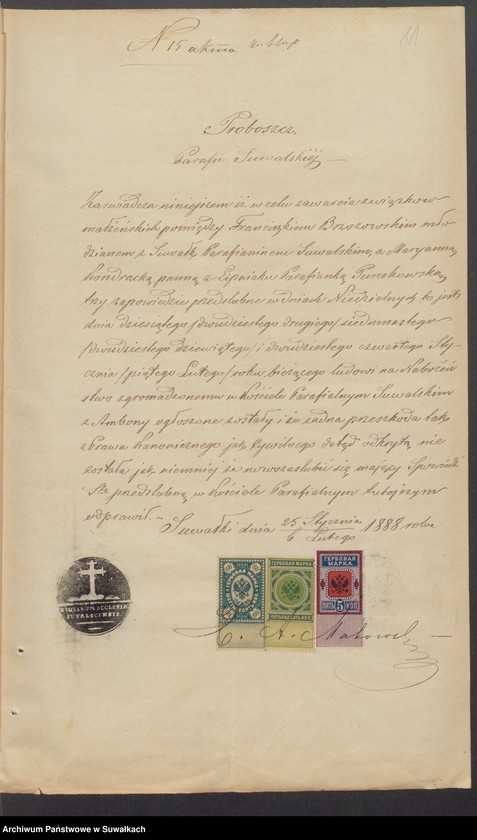 N 15 aktu
11
Proboszcz
Parafii Suwalskiéj
Zaświadcza niniejszem iż w celu zawarcia związków
małżeńskich pomiędzy Franciszkiem Brzozowskim mło
dzianem z Suwałk Parafianinem Suwalskim, a Maryanną
Kondracką panną z Lipniaku Parafianką
trzy zapowiedzie przedślubne w dniach Niedzielnych to jest
dnia dziesiątego /dwudziestego drugiego/ siedmnastego
/dwudziestego dziewiątego/ i dwudziestego czwartego Sty
cznia /piątego Lutego/ roku bieżącego ludowi na Nabożeń
stwo zgromadzonemu w Kościele Parafialnym Suwalskim
z Ambony ogłoszone zostały i że żadna przeszkoda tak
z Prawa Kanonicznego jak Cywilnego dotąd odkrytą nie
została jak niemniéj że nowozaślubić się mający Spowiedź
Stą przedślubną w Kościele Parafialnym tutejszym
odprawił. –
Suwałki dnia 25 Stycznia / 6 Lutego 1888 roku
SIGILLUM ECCLESIÆ
SUVALSCENSIS
ГЕРБОВАЯ МАРКА
ГЕРБОВАЯ МАРКА
ГЕРБОВАЯ МАРКА.
ПЯТЬ 5 КОП
X. A. Makowski
Archiwum Państwowe w Suwałkach